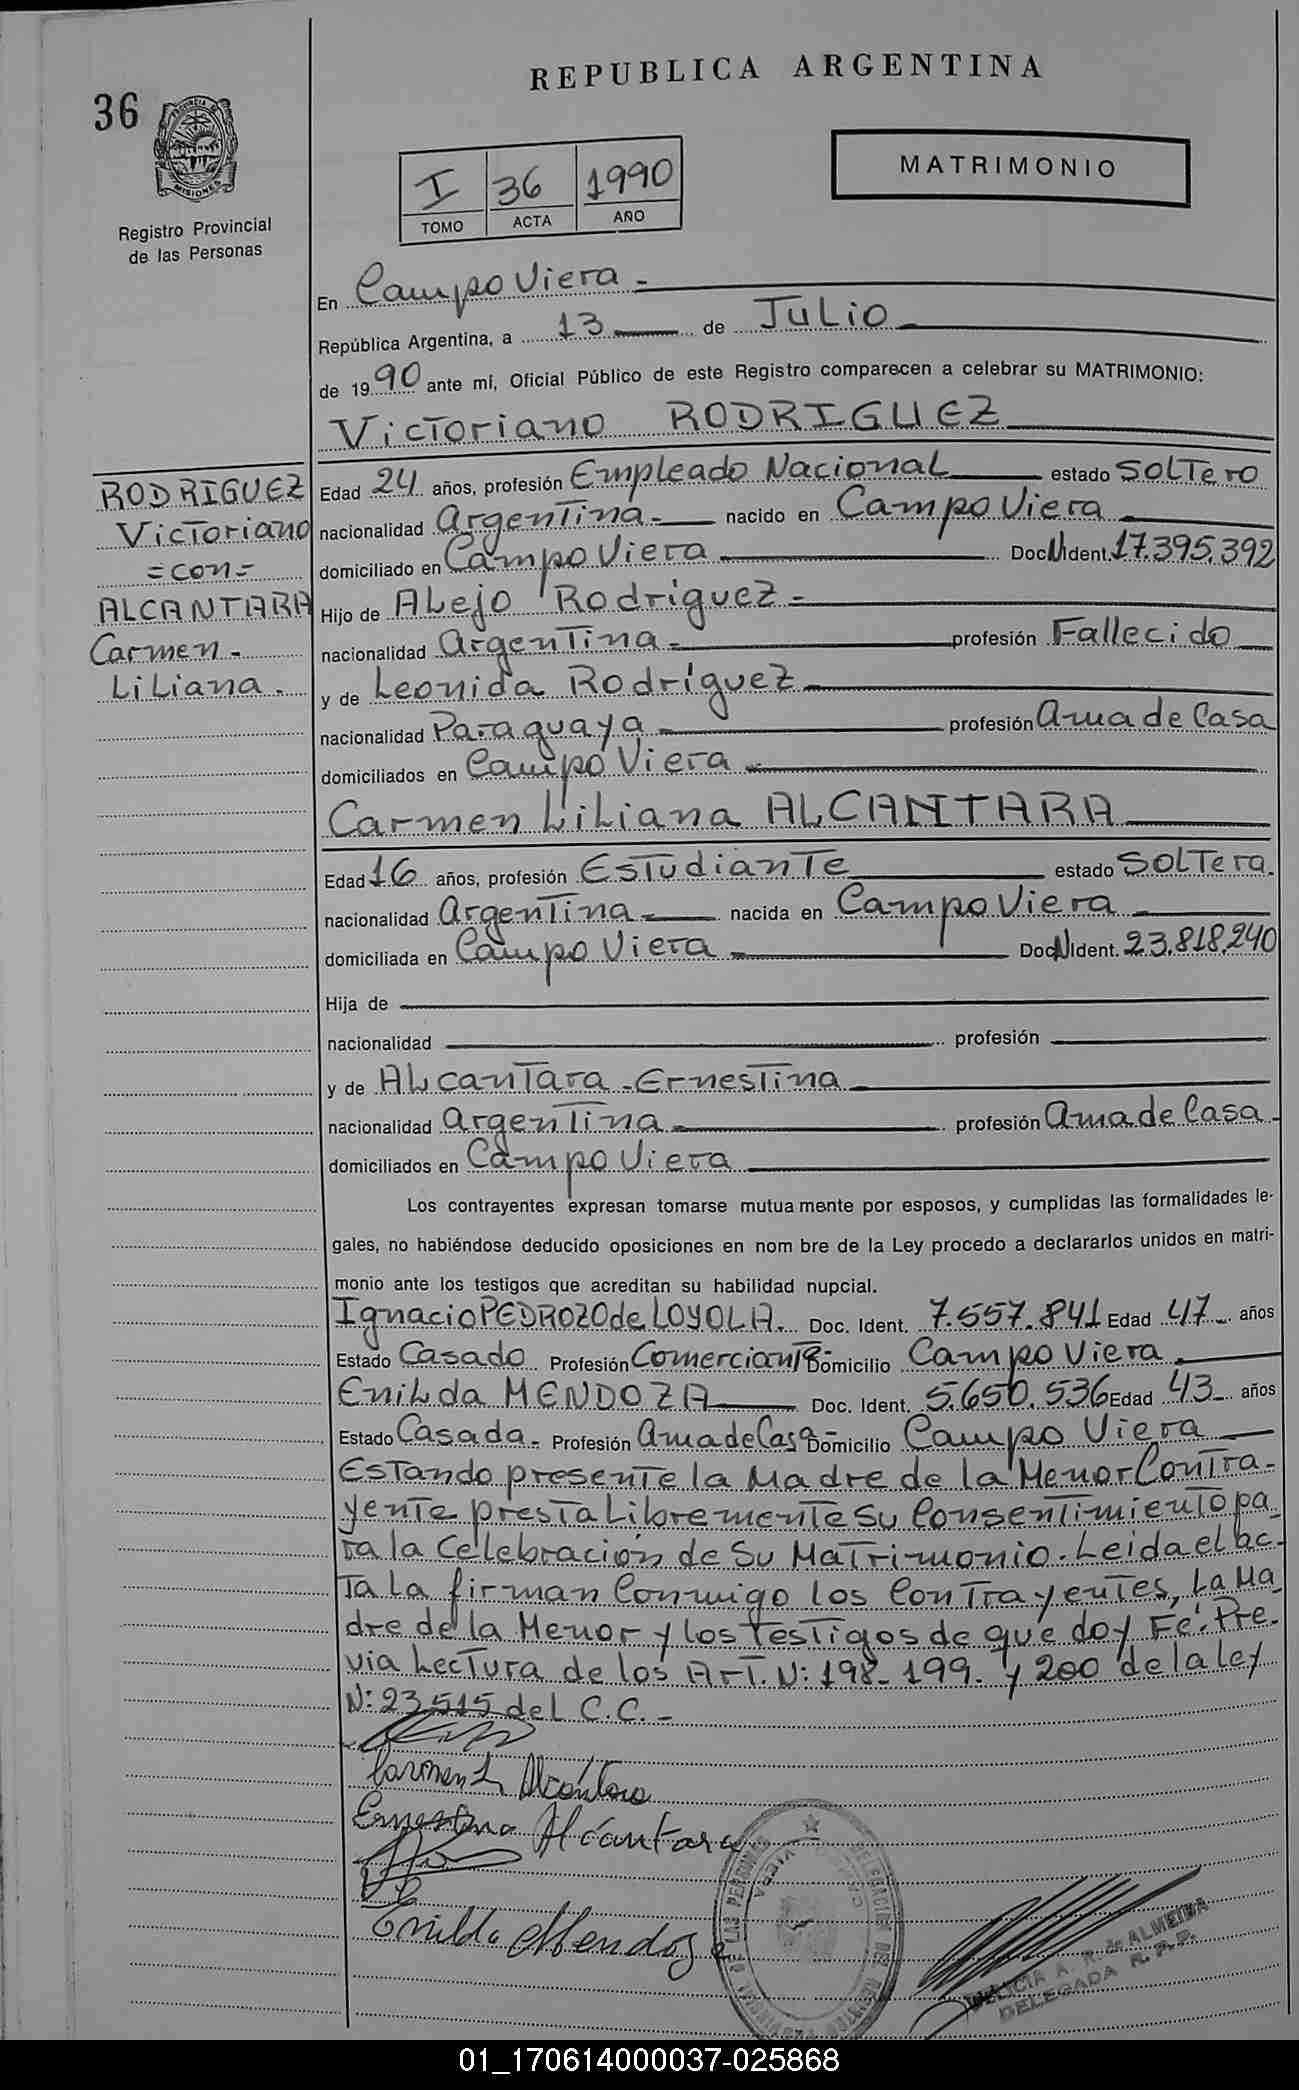 REPUBLICA ARGENTINA
36
PROVINCIA DE
MISIONES
Registro Provincial
de las Personas
I 36 1990
TOMO ACTA AÑO
MATRIMONIO
En Campo Viera.-
República Argentina, a 13 de JULIO.-
de 1990 ante mí, Oficial Público de este Registro comparecen a celebrar su MATRIMONIO:
Victoriano RODRIGUEZ
RODRIGUEZ
Victoriano
=con=
ALCANTARA
Carmen.-
Liliana.
Edad 24 años, profesión Empleado Nacional estado Soltero
nacionalidad Argentina.- nacido en Campo Viera
domiciliado en Campo Viera Doc.N.Ident. 17.395.392
Hijo de Alejo Rodriguez.-
nacionalidad Argentina.- profesión Fallecido
y de Leonida Rodriguez
nacionalidad Paraguaya profesión Ama de Casa
domiciliados en Campo Viera
Carmen Liliana ALCANTARA
Edad 16 años, profesión Estudiante estado Soltera.
nacionalidad Argentina.- nacida en Campo Viera
domiciliada en Campo Viera Doc.N.Ident. 23.818.240
Hija de
nacionalidad profesión
y de Alcantara Ernestina
nacionalidad Argentina profesión Ama de Casa.
domiciliados en Campo Viera
Los contrayentes expresan tomarse mutua mente por esposos, y cumplidas las formalidades le-
gales, no habiéndose deducido oposiciones en nom bre de la Ley procedo a declararlos unidos en matri-
monio ante los testigos que acreditan su habilidad nupcial.
Ignacio PEDROZO de LOYOLA. Doc. Ident. 7.557.841 Edad 47 años
Estado Casado Profesión Comerciante Domicilio Campo Viera
Enilda MENDOZA Doc. Ident. 5.650.536 Edad 43 años
Estado Casada.- Profesión Ama de Casa Domicilio Campo Viera
Estando presente la Madre de la Menor Contra-
yente presta Libremente su Consentimiento pa-
ra la Celebración de Su Matrimonio. Leida el ac-
ta La firman Conmigo los Contrayentes, La Ma-
dre de la Menor y los testigos de que doy Fé. Pre-
via Lectura de los Art. N: 198- 199- y 200 de la Ley
N: 23.515 del C.C.-
Carmen L Alcántara
Ernestina Alcantara
Enilda Mendoza
A. R. de ALMEIDA
DELEGADA R. P. P.
01_170614000037-025868